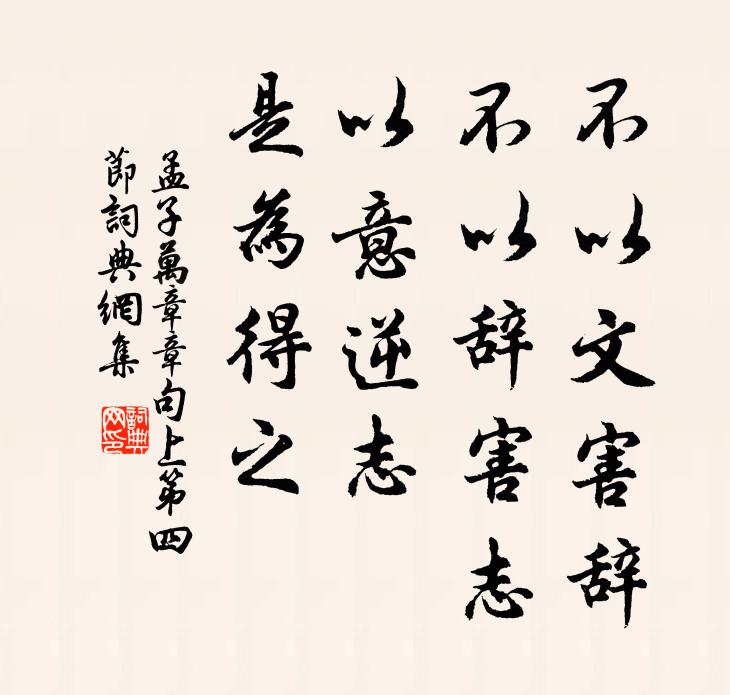 不以文害辞
不以辞害志
以意逆志
是為得之
孟子萬章章句上第四
節詞典網集
詞典
网印